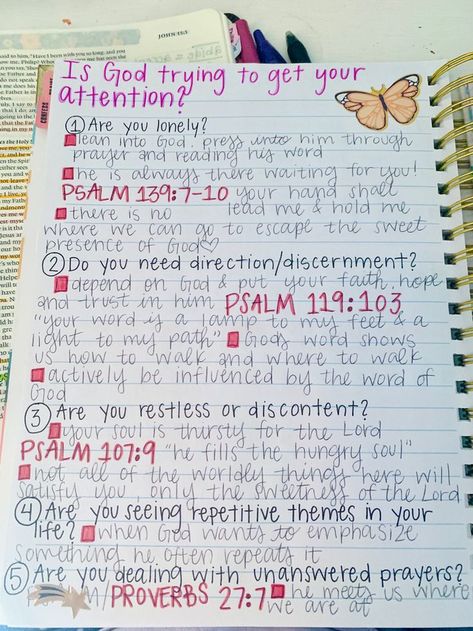 JOHN 15:5
Is God trying to get your
attention?
① Are you lonely?
lean into God. press into him through
prayer and reading his word
he is always there waiting for you!
PSALM 139:7-10 your hand shall
there is no lead me & hold me
where we can go to escape the sweet
presence of God♡
② Do you need direction/discernment?
depend on God & put your faith, hope
and trust in him PSALM 119:103
"your word is a lamp to my feet & a
light to my path" Gods word shows
us how to walk and where to walk
actively be influenced by the word of
God
③ Are you restless or discontent?
your soul is thirsty for the Lord
PSALM 107:9 "he fills the hungry soul"
not all of the worldly things here will
satisfy you, only the sweetness of the Lord
④ Are you seeing repetitive themes in your
life? when God wants to emphasize
something he often repeats it
⑤ Are you dealing with unanswered prayers?
PROVERBS 27:7 he meets us where
we are at